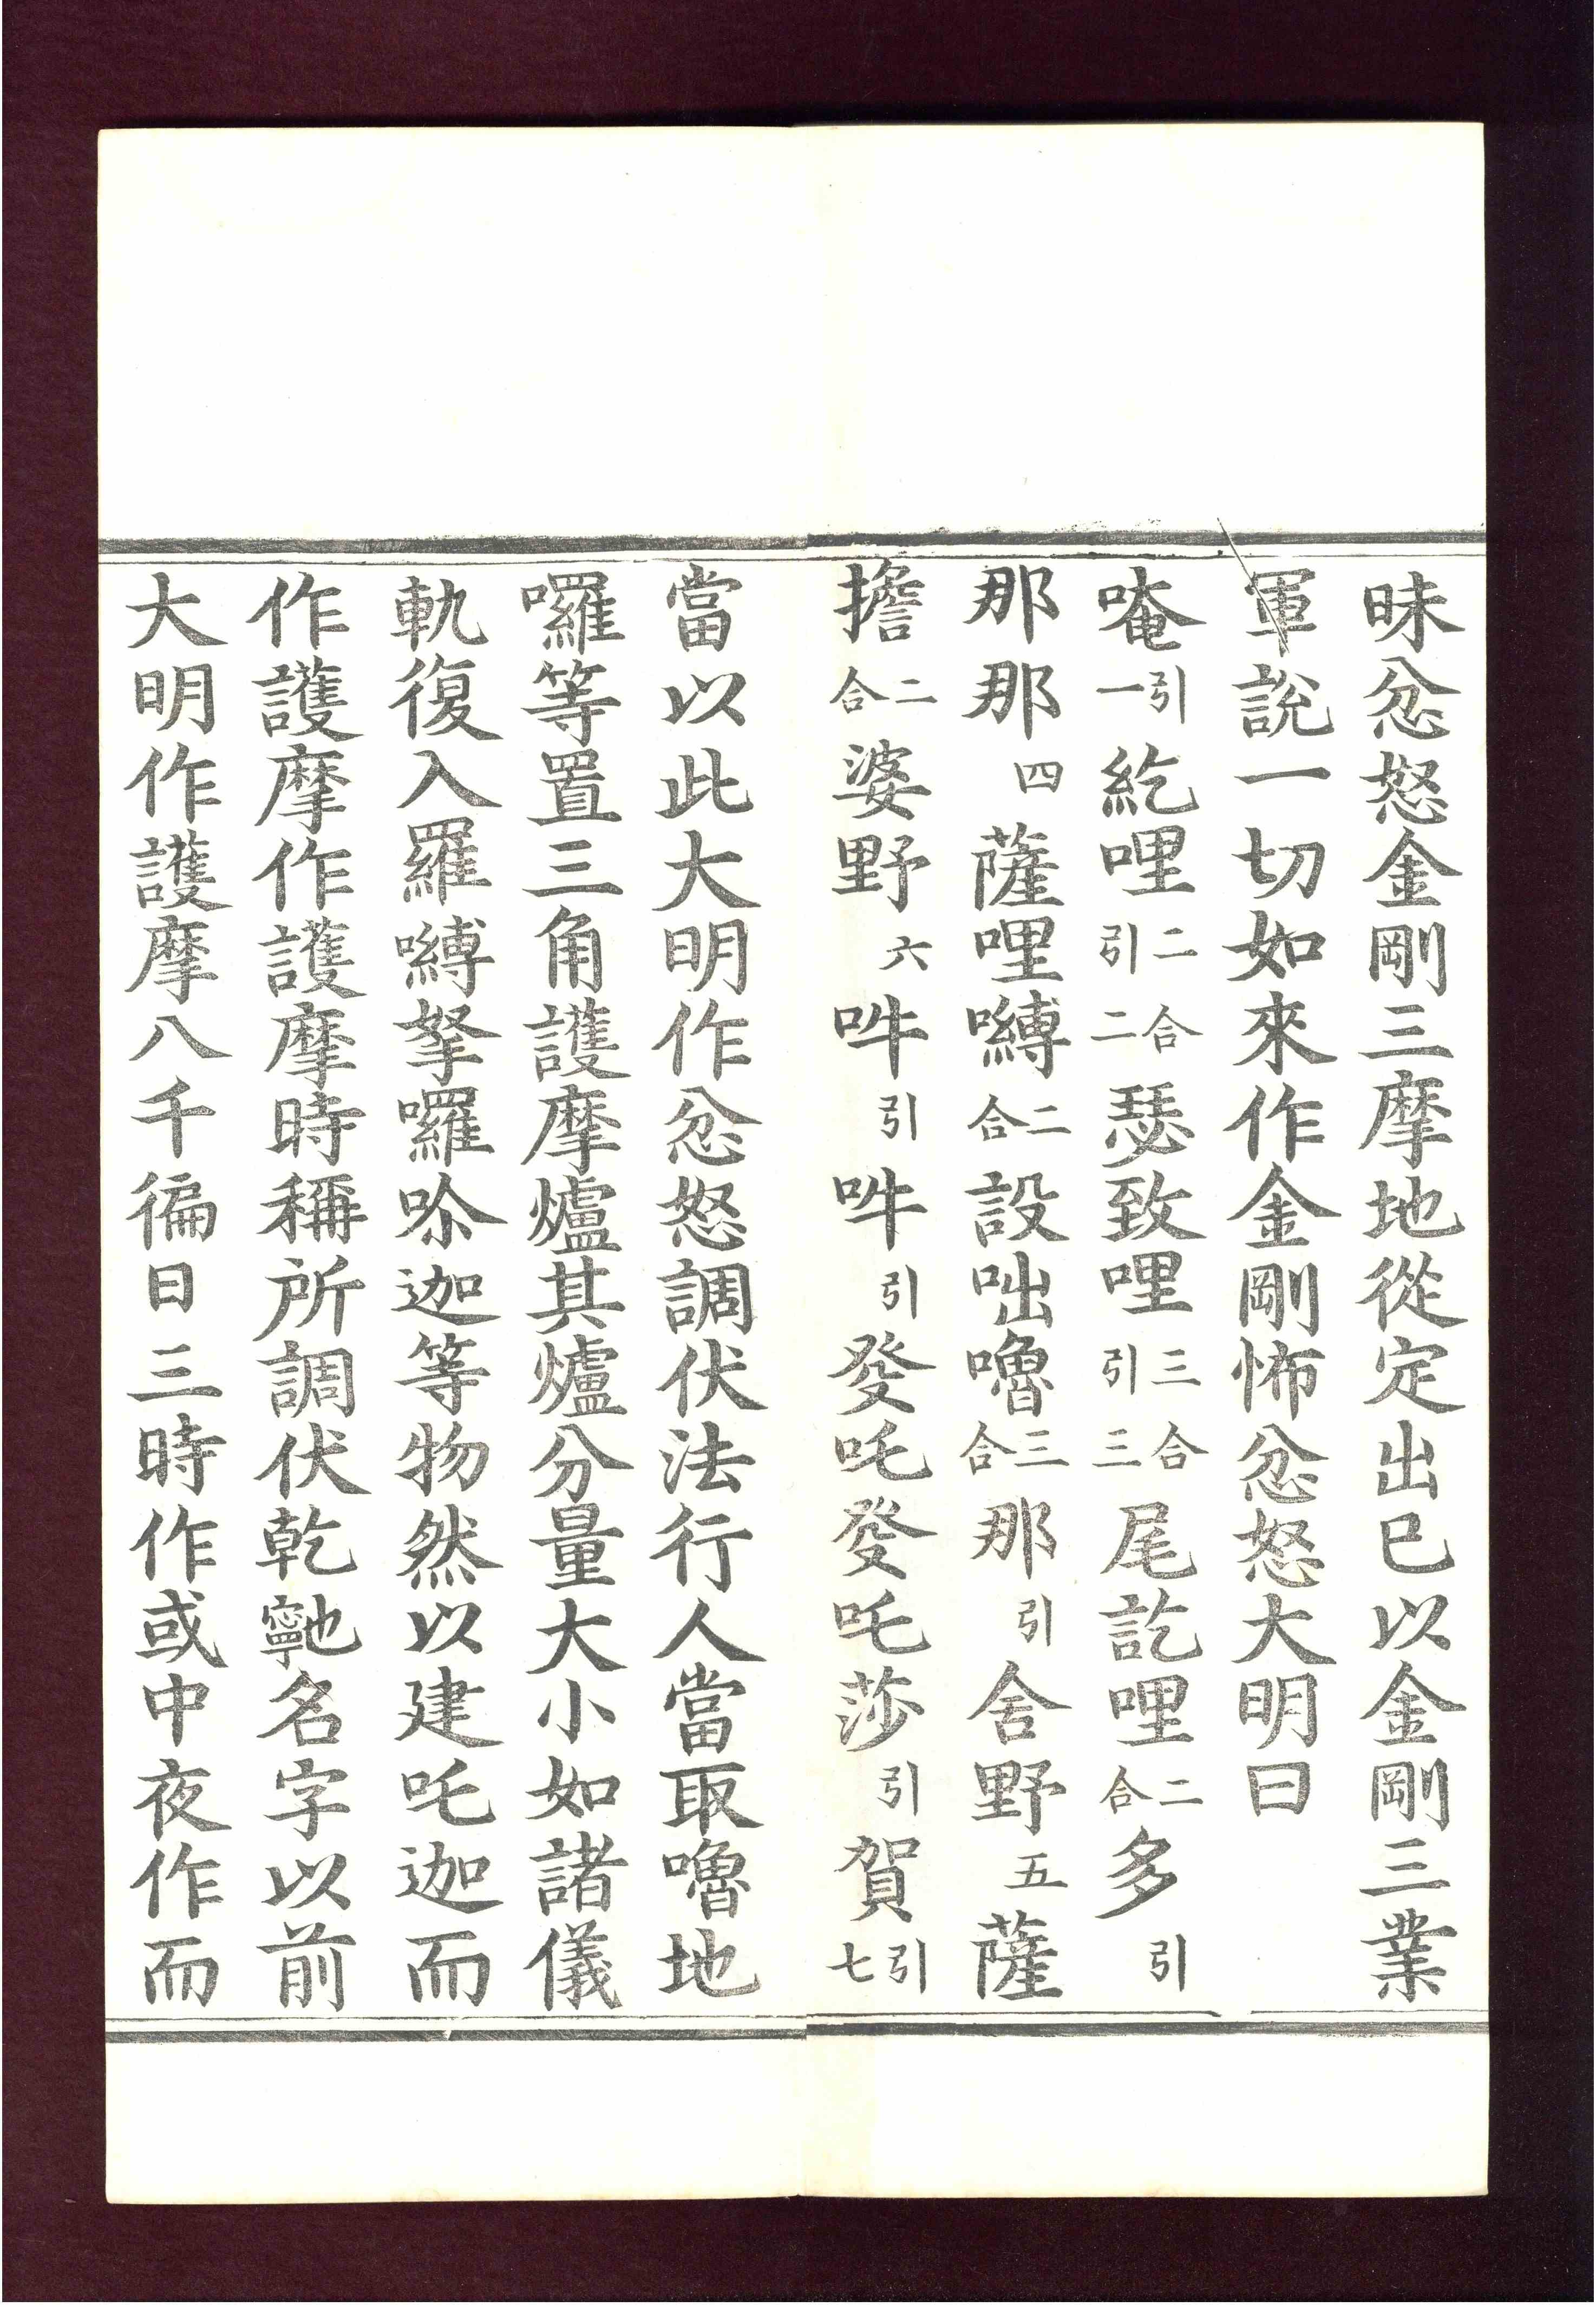 昧忿怒金剛三摩地從定出已以金剛三業
軍說一切如來作金剛怖忿怒大明曰
唵引一紇哩二合引二瑟致哩三合引三尾訖哩二合多引
那那四薩哩嚩二合設咄嚕三合那引舍野五薩
擔二合婆野六吽引吽引發吒發吒莎引賀引七
當以此大明作忿怒調伏法行人當取嚕地
囉等置三角護摩爐其爐分量大小如諸儀
軌復入羅嚩拏囉哆迦等物然以建吒迦而
作護摩作護摩時稱所調伏乾𩕳名字以前
大明作護摩八千徧日三時作或中夜作而